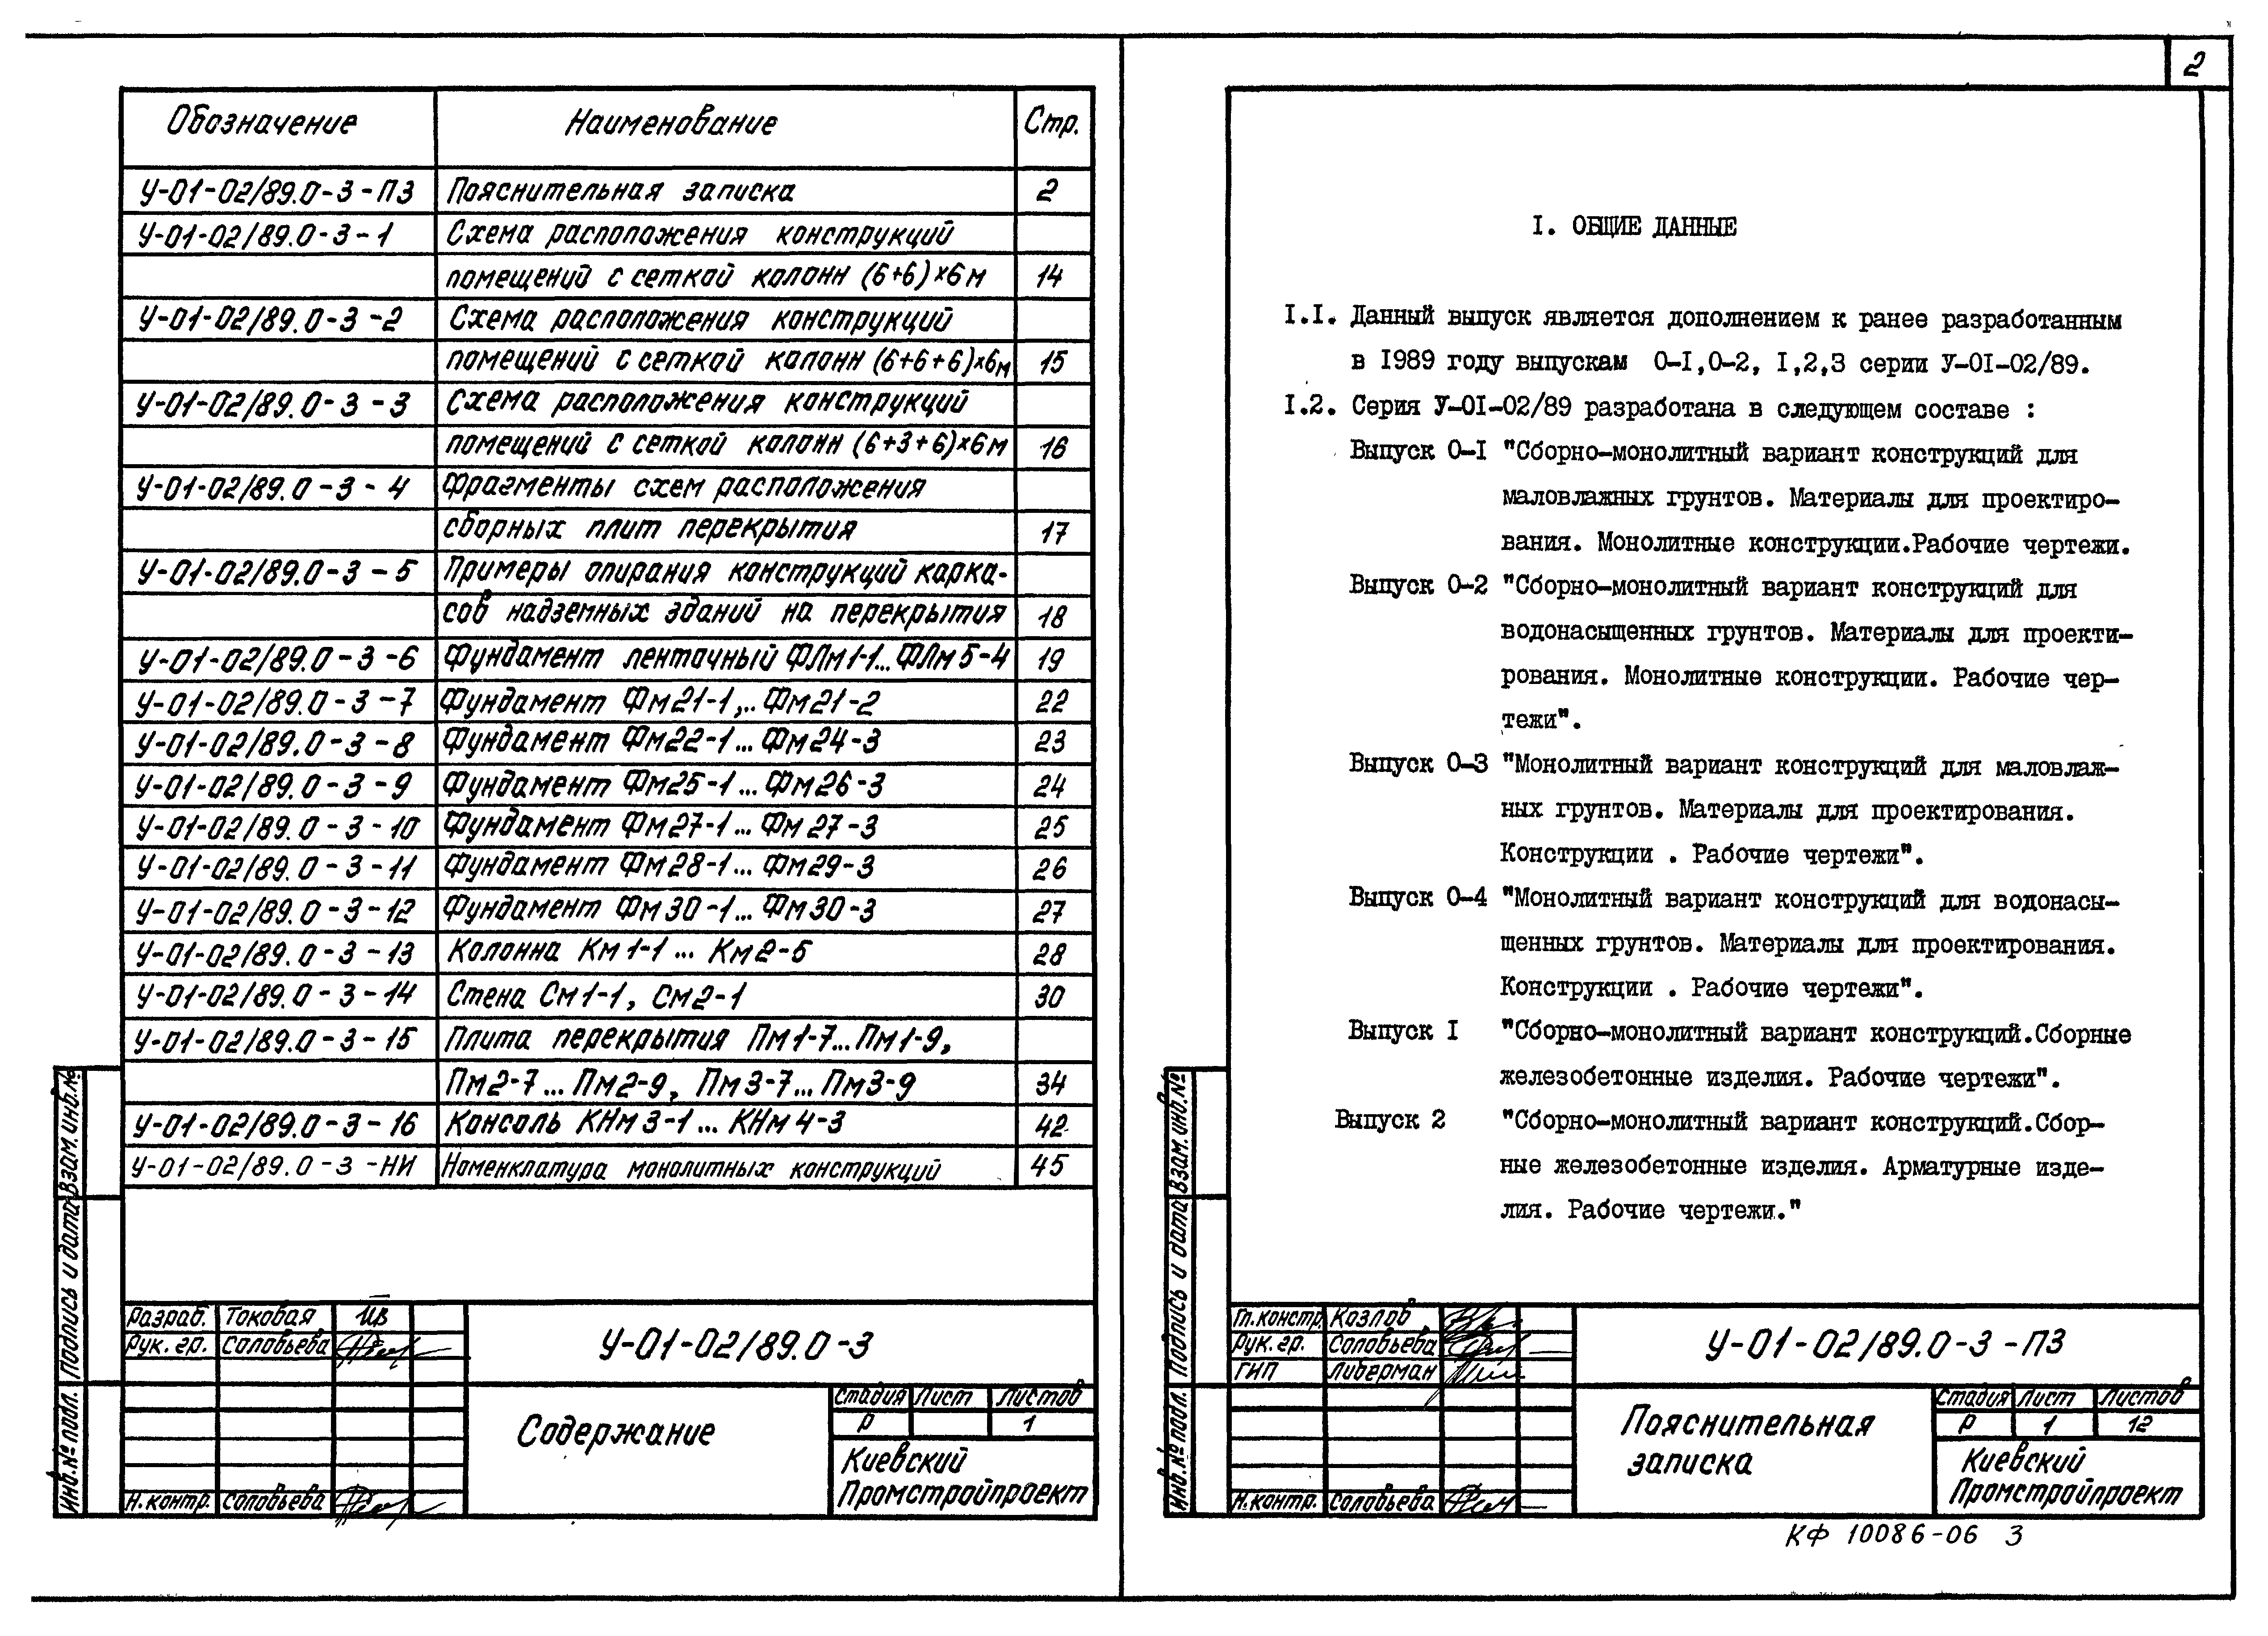 Обозначение Наименование Стр.
У-01-02/89.0-3-ПЗ Пояснительная записка 2
У-01-02/89.0-3-1 Схема расположения конструкций
помещений с сеткой колонн (6+6)×6м 14
У-01-02/89.0-3-2 Схема расположения конструкций
помещений с сеткой колонн (6+6+6)×6м 15
У-01-02/89.0-3-3 Схема расположения конструкций
помещений с сеткой колонн (6+3+6)×6м 16
У-01-02/89.0-3-4 Фрагменты схем расположения
сборных плит перекрытия 17
У-01-02/89.0-3-5 Примеры опирания конструкций карка-
сов надземных зданий на перекрытия 18
У-01-02/89.0-3-6 Фундамент ленточный ФЛм1-1...ФЛм5-4 19
У-01-02/89.0-3-7 Фундамент Фм21-1,.. Фм21-2 22
У-01-02/89.0-3-8 Фундамент Фм22-1... Фм24-3 23
У-01-02/89.0-3-9 Фундамент Фм25-1... Фм26-3 24
У-01-02/89.0-3-10 Фундамент Фм27-1... Фм27-3 25
У-01-02/89.0-3-11 Фундамент Фм28-1... Фм29-3 26
У-01-02/89.0-3-12 Фундамент Фм30-1... Фм30-3 27
У-01-02/89.0-3-13 Колонна Км1-1... Км2-5 28
У-01-02/89.0-3-14 Стена См1-1, См2-1 30
У-01-02/89.0-3-15 Плита перекрытия Пм1-7...Пм1-9,
Пм2-7... Пм2-9, Пм3-7... Пм3-9 34
У-01-02/89.0-3-16 Консоль КНм3-1... КНм4-3 42
У-01-02/89.0-3-НИ Номенклатура монолитных конструкций 45
Взам. инв.№
Подпись и дата
Инв.№ подл.
Разраб. Токовая
Рук. гр. Соловьева
Н.контр. Соловьева
У-01-02/89.0-3
Содержание
Стадия Лист Листов
Р 1
Киевский
Промстройпроект
2
I. ОБЩИЕ ДАННЫЕ
I.I. Данный выпуск является дополнением к ранее разработанным
в 1989 году выпускам 0-I,0-2, I,2,3 серии У-0I-02/89.
I.2. Серия У-0I-02/89 разработана в следующем составе :
Выпуск 0-I "Сборно-монолитный вариант конструкций для
маловлажных грунтов. Материалы для проектиро-
вания. Монолитные конструкции.Рабочие чертежи.
Выпуск 0-2 "Сборно-монолитный вариант конструкций для
водонасыщенных грунтов. Материалы для проекти-
рования. Монолитные конструкции. Рабочие чер-
тежи".
Выпуск 0-3 "Монолитный вариант конструкций для маловлаж-
ных грунтов. Материалы для проектирования.
Конструкции . Рабочие чертежи".
Выпуск 0-4 "Монолитный вариант конструкций для водонасы-
щенных грунтов. Материалы для проектирования.
Конструкции . Рабочие чертежи".
Выпуск I "Сборно-монолитный вариант конструкций.Сборные
железобетонные изделия. Рабочие чертежи".
Выпуск 2 "Сборно-монолитный вариант конструкций.Сбор-
ные железобетонные изделия. Арматурные изде-
лия. Рабочие чертежи."
Взам. инв.№
Подпись и дата
Инв.№ подл.
Гл.констр. Козлов
Рук. гр. Соловьева
ГИП Либерман
Н.контр. Соловьева
У-01-02/89.0-3-ПЗ
Пояснительная
записка
Стадия Лист Листов
Р 1 12
Киевский
Промстройпроект
КФ 10086-06 3